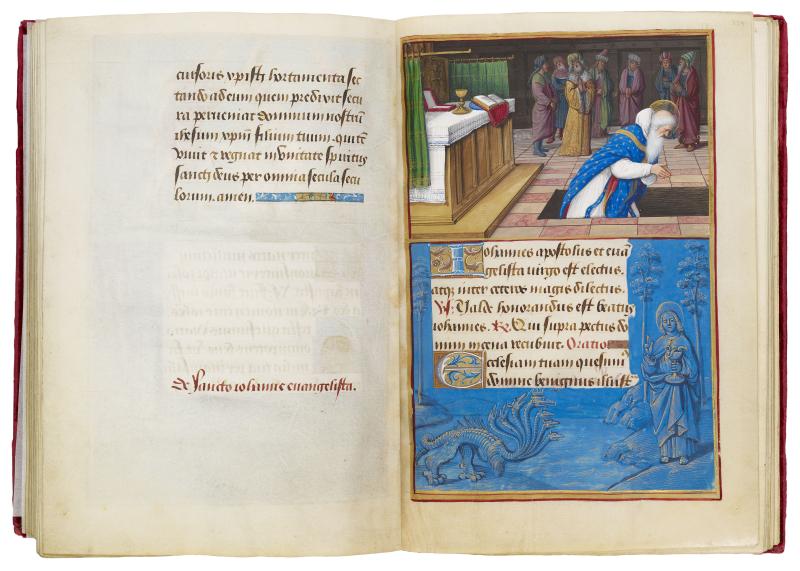 cursoris xpisti hortamenta sec
tando ad eum quem predixit secu
ra perueniat dominum nostrum
ihesum xpm filium tuum. qui tecum
viuit & regnat in vnitate spiritus
sancti deus per omnia secula secu
lorum. amen.
De sancto iohanne euangelista.
Iohannes apostolus et euan
gelista virgo est electus.
atque inter ceteros magis dilectus.
V. Valde honorandus est beatus
iohannes. R. Qui supra pectus do
mini in cena recubuit. Oratio
Ecclesiam tuam quesumus
domine benignus illustr